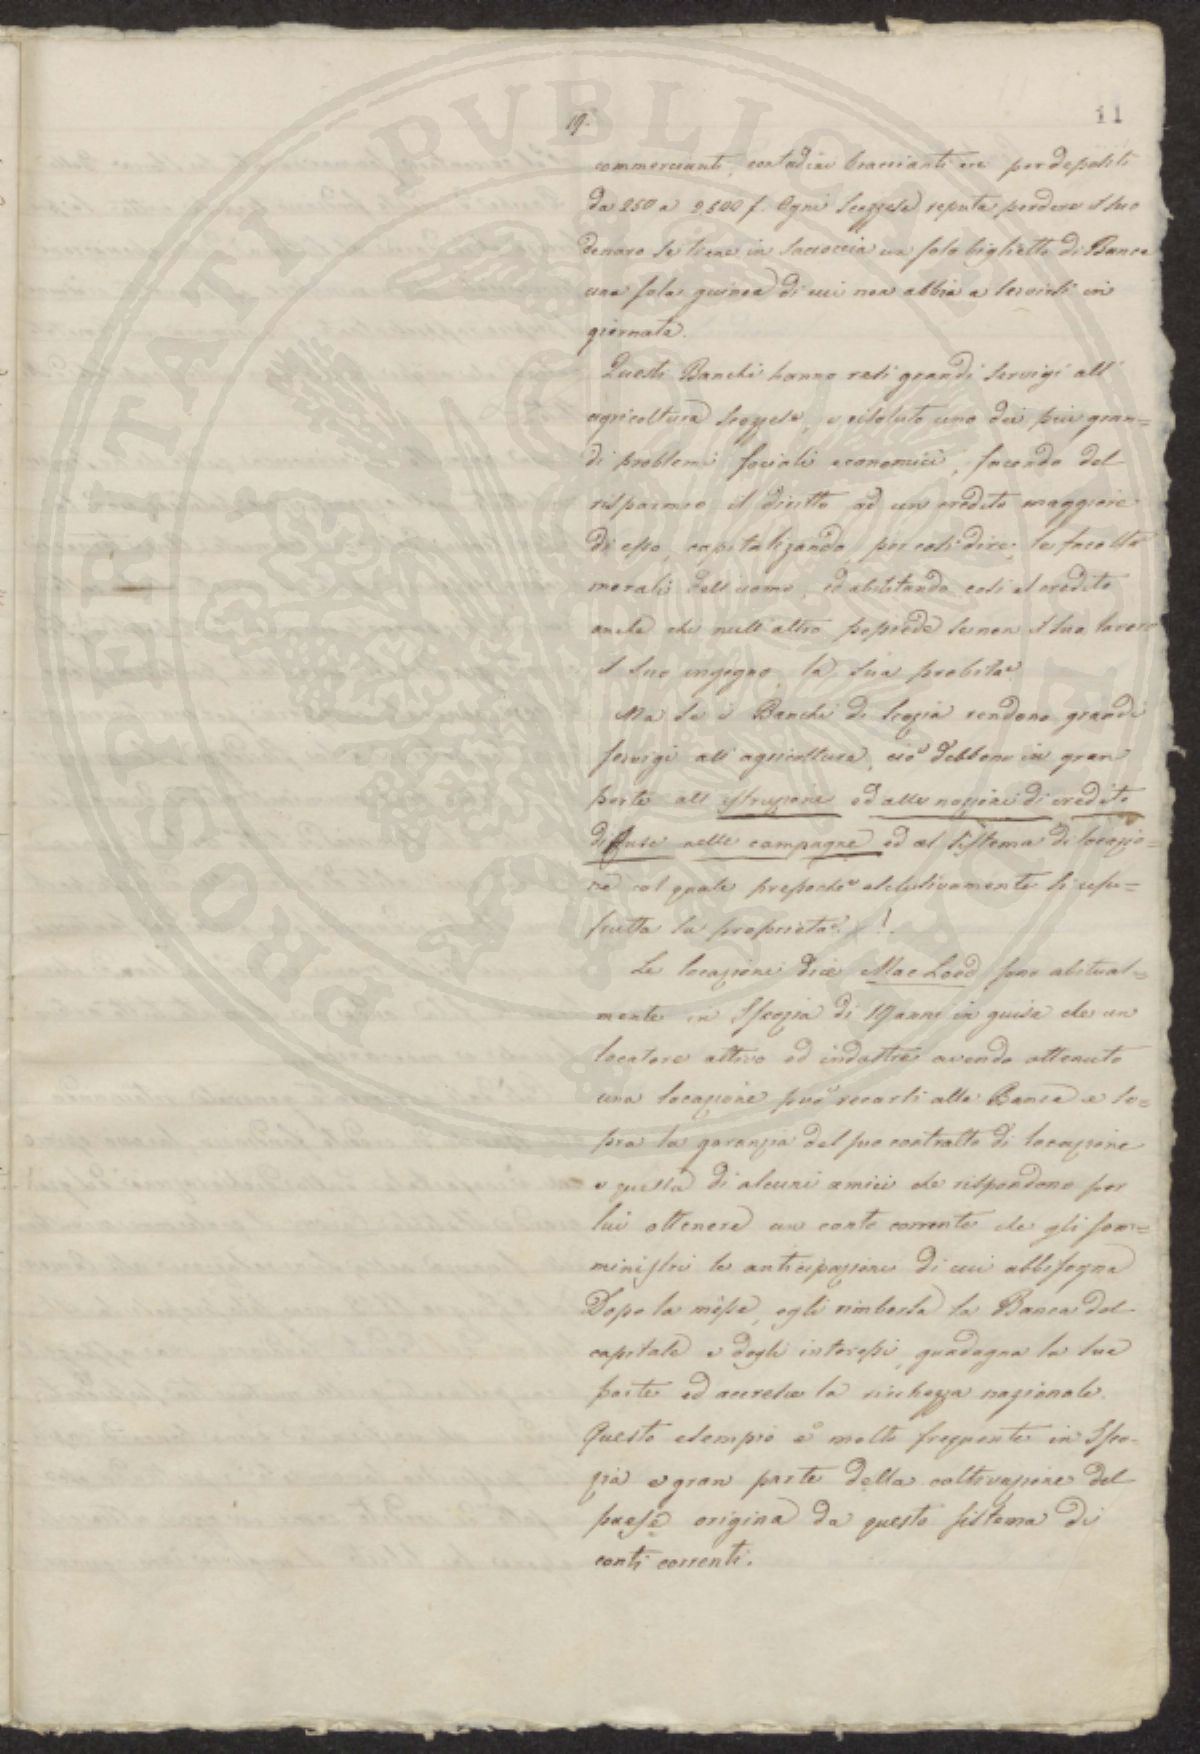 19.
11
commercianti, contadini braccianti ecc per depositi
da 250 a 2,500 f. Ogni Scozzese reputa perdere il suo
denaro se tiene in saccoccia un solo biglietto di Banca
una sola guinea di cui non abbia a servirsi in
giornata.
Questi Banchi hanno resi grandi servigi all'
agricoltura scozzese, e risoluto uno dei più gran=
di problemi sociali economici, facendo del
risparmio il diritto ad un credito maggiore
di esso, capitalizzando, per così dire, le facoltà
morali dell'uomo, ed abilitando così al credito
anche chi null'altro possiede se non il suo lavoro
il suo ingegno, la sua probità.
Ma se i Banchi di Scozia rendono grandi
servigi all'agricoltura, ciò debbono in gran
parte all'istruzione ed alle nozioni di credito
diffuse nelle campagne ed al sistema di locazio=
ne col quale pressochè esclusivamente si usu=
frutta la proprietà!.
Le locazioni dice Mac Leod sono abitual=
mente in Iscozia di 19 anni in guisa che un
locatore attivo ed industre avendo ottenuto
una locazione può recarsi alla Banca e so=
pra la garanzia del suo contratto di locazione
e quella di alcuni amici che rispondono per
lui ottenere un conto corrente che gli som=
ministri le anticipazioni di cui abbisogna
Dopo la messe, egli rimborsa la Banca del
capitale e degli interessi, guadagna la sua
parte ed accresce la ricchezza nazionale.
Questo esempio è molto frequente in Isco=
zia e gran parte della coltivazione del
paese origina da questo sistema di
conti correnti.
PROSPERITATI PVBLICAE